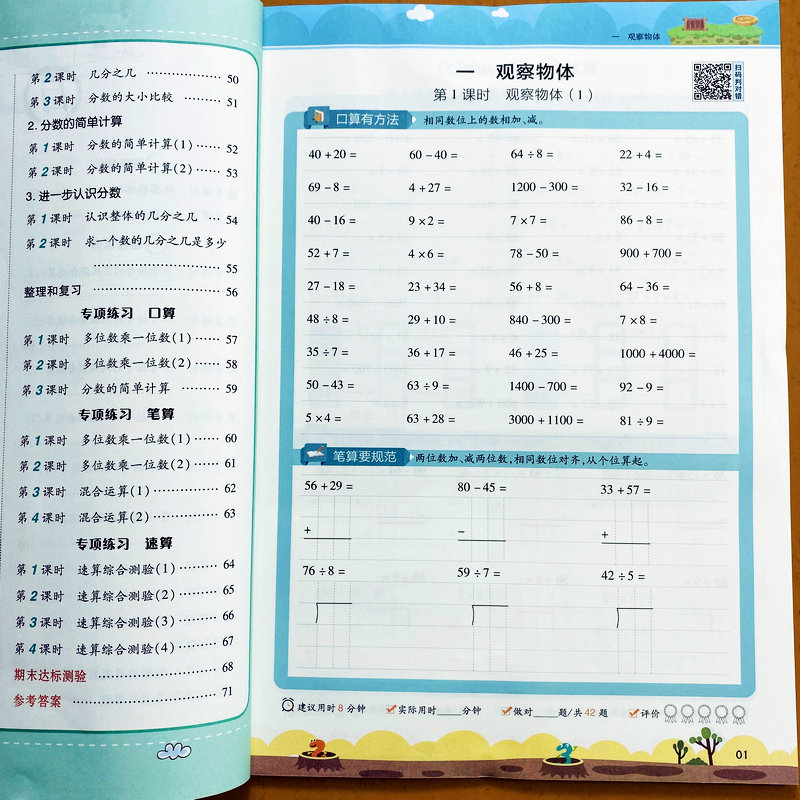 第2课时 几分之几 ……………… 50
第3课时 分数的大小比较 ……… 51
2. 分数的简单计算
第1课时 分数的简单计算(1) …… 52
第2课时 分数的简单计算(2) …… 53
3. 进一步认识分数
第1课时 认识整体的几分之几 … 54
第2课时 求一个数的几分之几是多少
……………………………… 55
整理和复习 ……………………… 56
专项练习 口算
第1课时 多位数乘一位数(1) …… 57
第2课时 多位数乘一位数(2) …… 58
第3课时 分数的简单计算 ……… 59
专项练习 笔算
第1课时 多位数乘一位数(1) …… 60
第2课时 多位数乘一位数(2) …… 61
第3课时 混合运算(1) ………… 62
第4课时 混合运算(2) ………… 63
专项练习 速算
第1课时 速算综合测验(1) ……… 64
第2课时 速算综合测验(2) ……… 65
第3课时 速算综合测验(3) ……… 66
第4课时 速算综合测验(4) ……… 67
期末达标测验 …………………… 68
参考答案 ………………………… 71
一 观察物体
一 观察物体
第1课时 观察物体(1)
扫码判对错
口算有方法 相同数位上的数相加、减。
40+20= 60-40= 64÷8= 22+4=
69-8= 4+27= 1200-300= 32-16=
40-16= 9×2= 7×7= 86-8=
52+7= 4×6= 78-50= 900+700=
27-18= 23+34= 56+8= 64-36=
48÷8= 29+10= 840-300= 7×8=
35÷7= 36+17= 46+25= 1000+4000=
50-43= 63÷9= 1400-700= 92-9=
5×4= 63+28= 3000+1100= 81÷9=
笔算要规范 两位数加、减两位数,相同数位对齐,从个位算起。
56+29= 80-45= 33+57=
+ - +
76÷8= 59÷7= 42÷5=
建议用时8分钟 实际用时____分钟 做对____题/共42题 评价
01